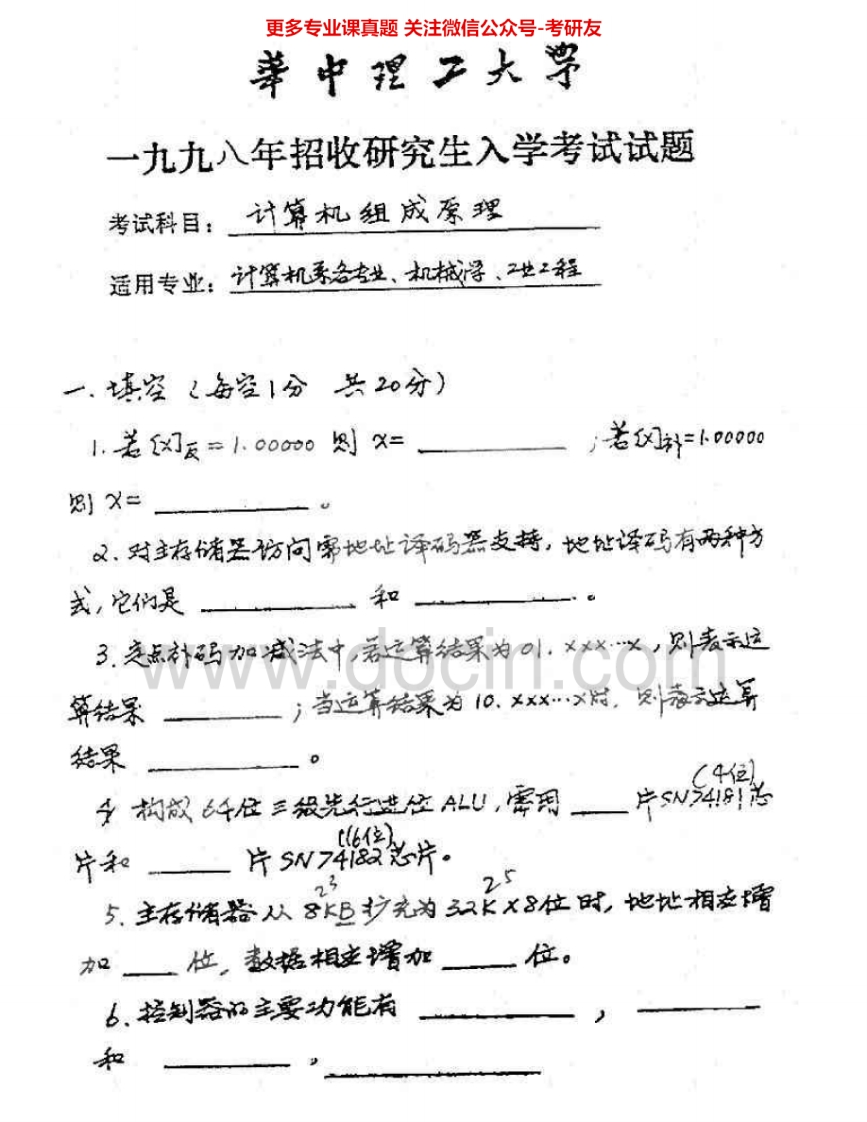 更多专业课真题 关注微信公众号-考研友
華中理工大学
一九九八年招收研究生入学考试试题
考试科目: 计算机组成原理
适用专业: 计算机系各专业、机械学、工业工程
一. 填空 (每空1分 共20分)
1. 若[X]反=1.00000 则 X= ________ ;若[X]补=1.00000
则 X= ________ 。
2. 对主存储器访问需地址译码器支持, 地址译码有两种方
式, 它们是 ________ 和 ________ 。
3. 定点补码加减法中, 若运算结果为 01. xxx…x, 则表示运
算结果 ________ ; 当运算结果为 10. xxx…x时, 则表示运算
结果 ________ 。
(4位)
4 构成64位三级先行进位ALU, 需用 ____ 片SN74181芯
(16位)
片和 ____ 片SN74182芯片。
2³ 2⁵
5. 主存储器从 8KB 扩充为 32K×8位时, 地址相应增
加 ____ 位, 数据相应增加 ____ 位。
6. 控制器的主要功能有 ________ , ________
和 ________ 。
www.docin.com